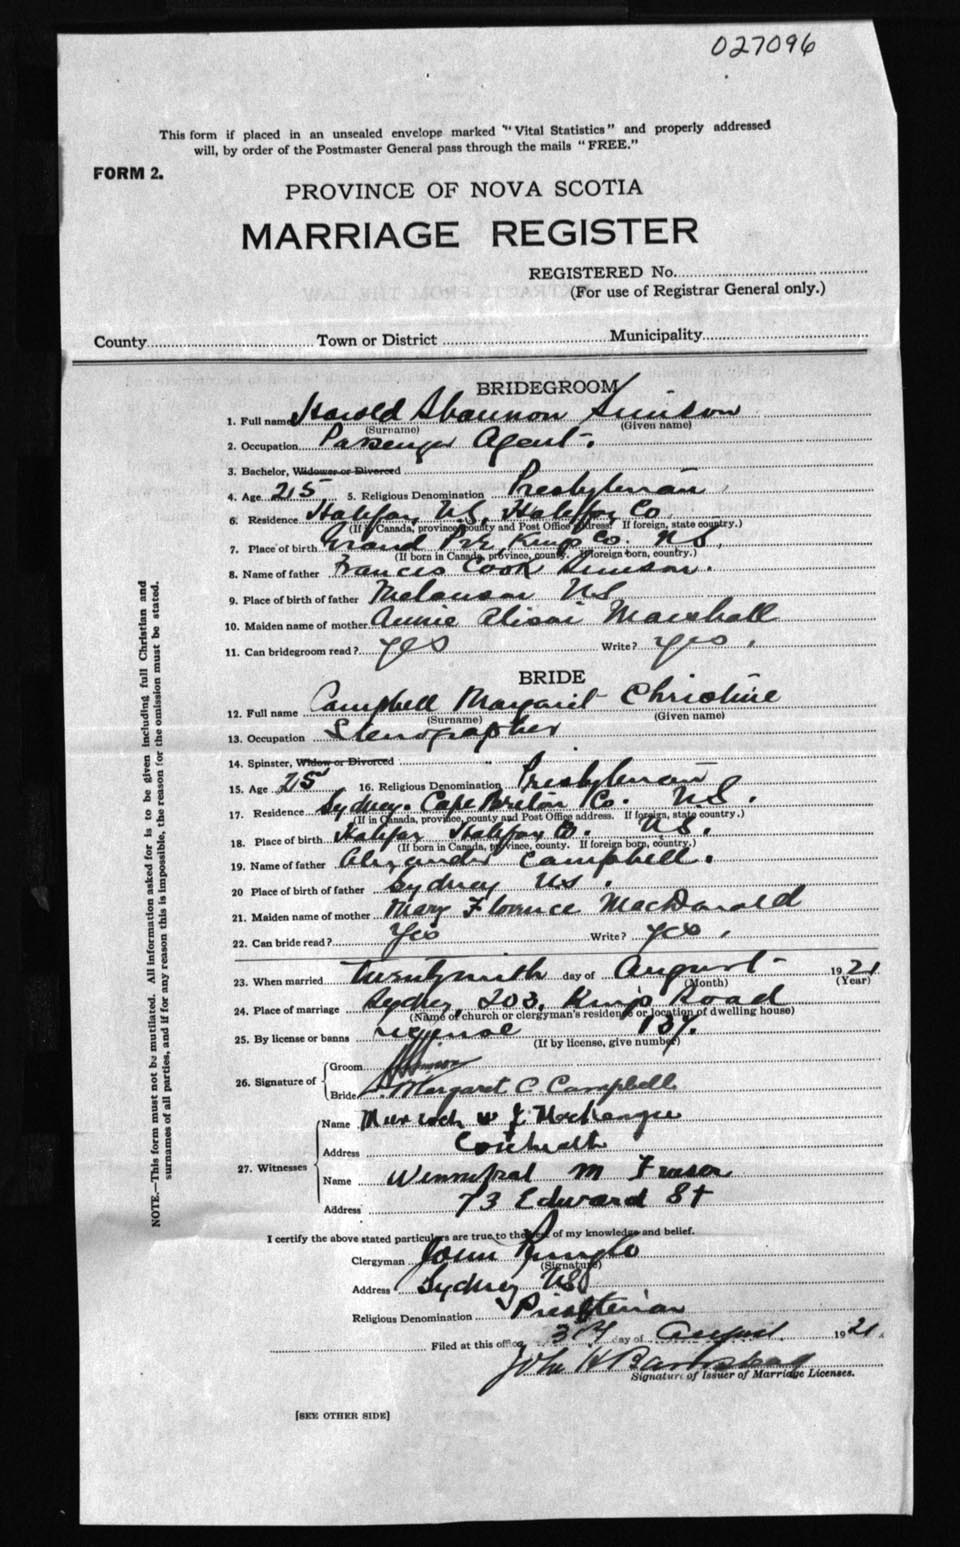 027096
This form if placed in an unsealed envelope marked "Vital Statistics" and properly addressed
will, by order of the Postmaster General pass through the mails "FREE."
FORM 2.
PROVINCE OF NOVA SCOTIA
MARRIAGE REGISTER
REGISTERED No.
(For use of Registrar General only.)
County Town or District Municipality
BRIDEGROOM
1. Full name Harold Shannon Simson
(Surname) (Given name)
2. Occupation Passenger Agent.
3. Bachelor, Widower or Divorced
4. Age 25 5. Religious Denomination Presbyterian
6. Residence Halifax, N.S., Halifax Co
(If in Canada, province, county and Post Office address. If foreign, state country.)
7. Place of birth Grand Pre, Kings Co. N.S.
(If born in Canada, province, county. If foreign born, country.)
8. Name of father Francis Cook Simson.
9. Place of birth of father Melanson N.S
10. Maiden name of mother Annie Marshall
11. Can bridegroom read? yes Write? yes.
BRIDE
12. Full name Campbell Margaret Christine
(Surname) (Given name)
13. Occupation Stenographer
14. Spinster, Widow or Divorced "
15. Age 25 16. Religious Denomination Presbyterian
17. Residence Sydney. Cape Breton Co. N.S.
(If in Canada, province, county and Post Office address. If foreign, state country.)
18. Place of birth Halifax Halifax Co. N.S.
(If born in Canada, province, county. If foreign born, country.)
19. Name of father Alexander Campbell.
20 Place of birth of father Sydney N.S.
21. Maiden name of mother Mary Florence MacDonald
22. Can bride read? Yes Write? yes.
23. When married twentyninth day of August 1921
(Month) (Year)
24. Place of marriage Sydney, 203, Kings Road
(Name of church or clergyman's residence or location of dwelling house)
25. By license or banns license 137.
(If by license, give number)
26. Signature of
Groom
Bride Margaret C. Campbell
27. Witnesses
Name Murdoch W J MacKenzie
Address
Name Winnifred M Fraser
Address 73 Edward St
I certify the above stated particulars are true to the best of my knowledge and belief.
Clergyman John Pringle
(Signature)
Address Sydney N.S.
Religious Denomination Presbyterian
Filed at this office day of August 1921.
John H
Signature of Issuer of Marriage Licenses.
[SEE OTHER SIDE]
NOTE.—This form must not be mutilated. All information asked for is to be given including full Christian and
surnames of all parties, and if for any reason this is impossible, the reason for the omission must be stated.